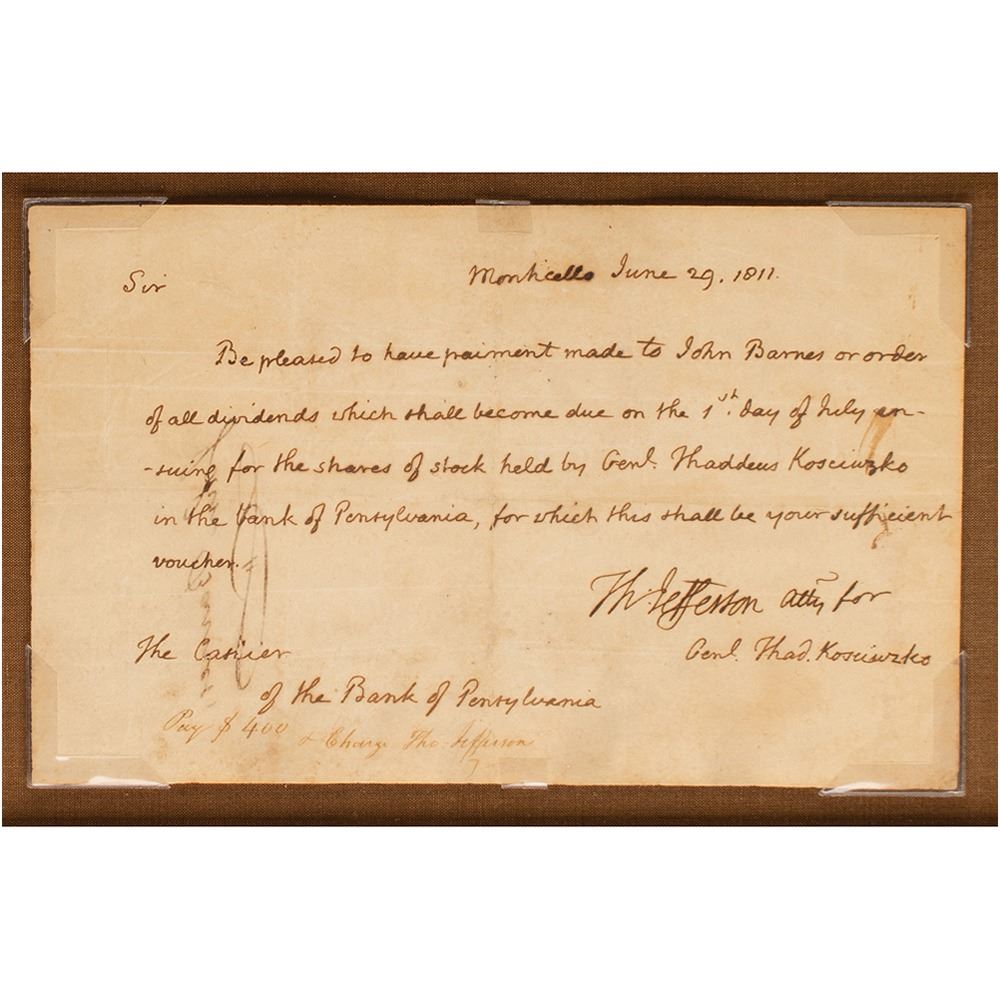 Monticello June 29. 1811.
Sir
Be pleased to have paiment made to John Barnes or order
of all dividends which shall become due on the 1st. day of July en-
-suing for the shares of stock held by Genl. Thaddeus Kosciuzko
in the bank of Pensylvania, for which this shall be your sufficient
voucher.
Th: Jefferson atty for
Genl. Thad. Kosciuzko
The Cashier
of the Bank of Pensylvania
Pay $ 400
& Charge Tho Jefferson